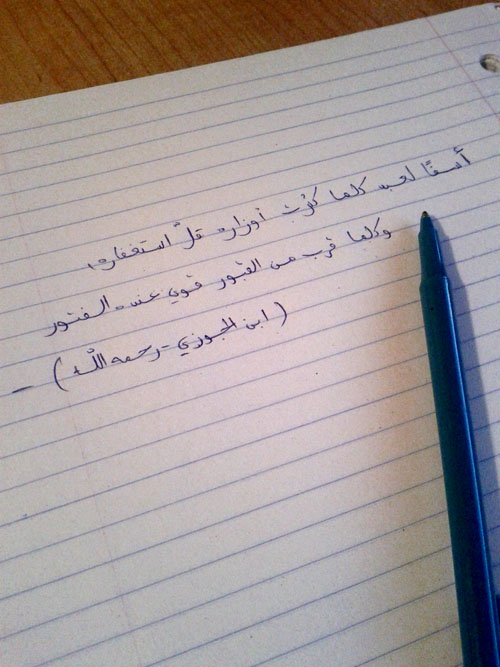 أسفًا لعبد كلما كثرت أوزاره قلّ استغفاره
وكلما قرب من القبور قوي عنده الفتور
(ابن الجوزي - رحمه الله) -